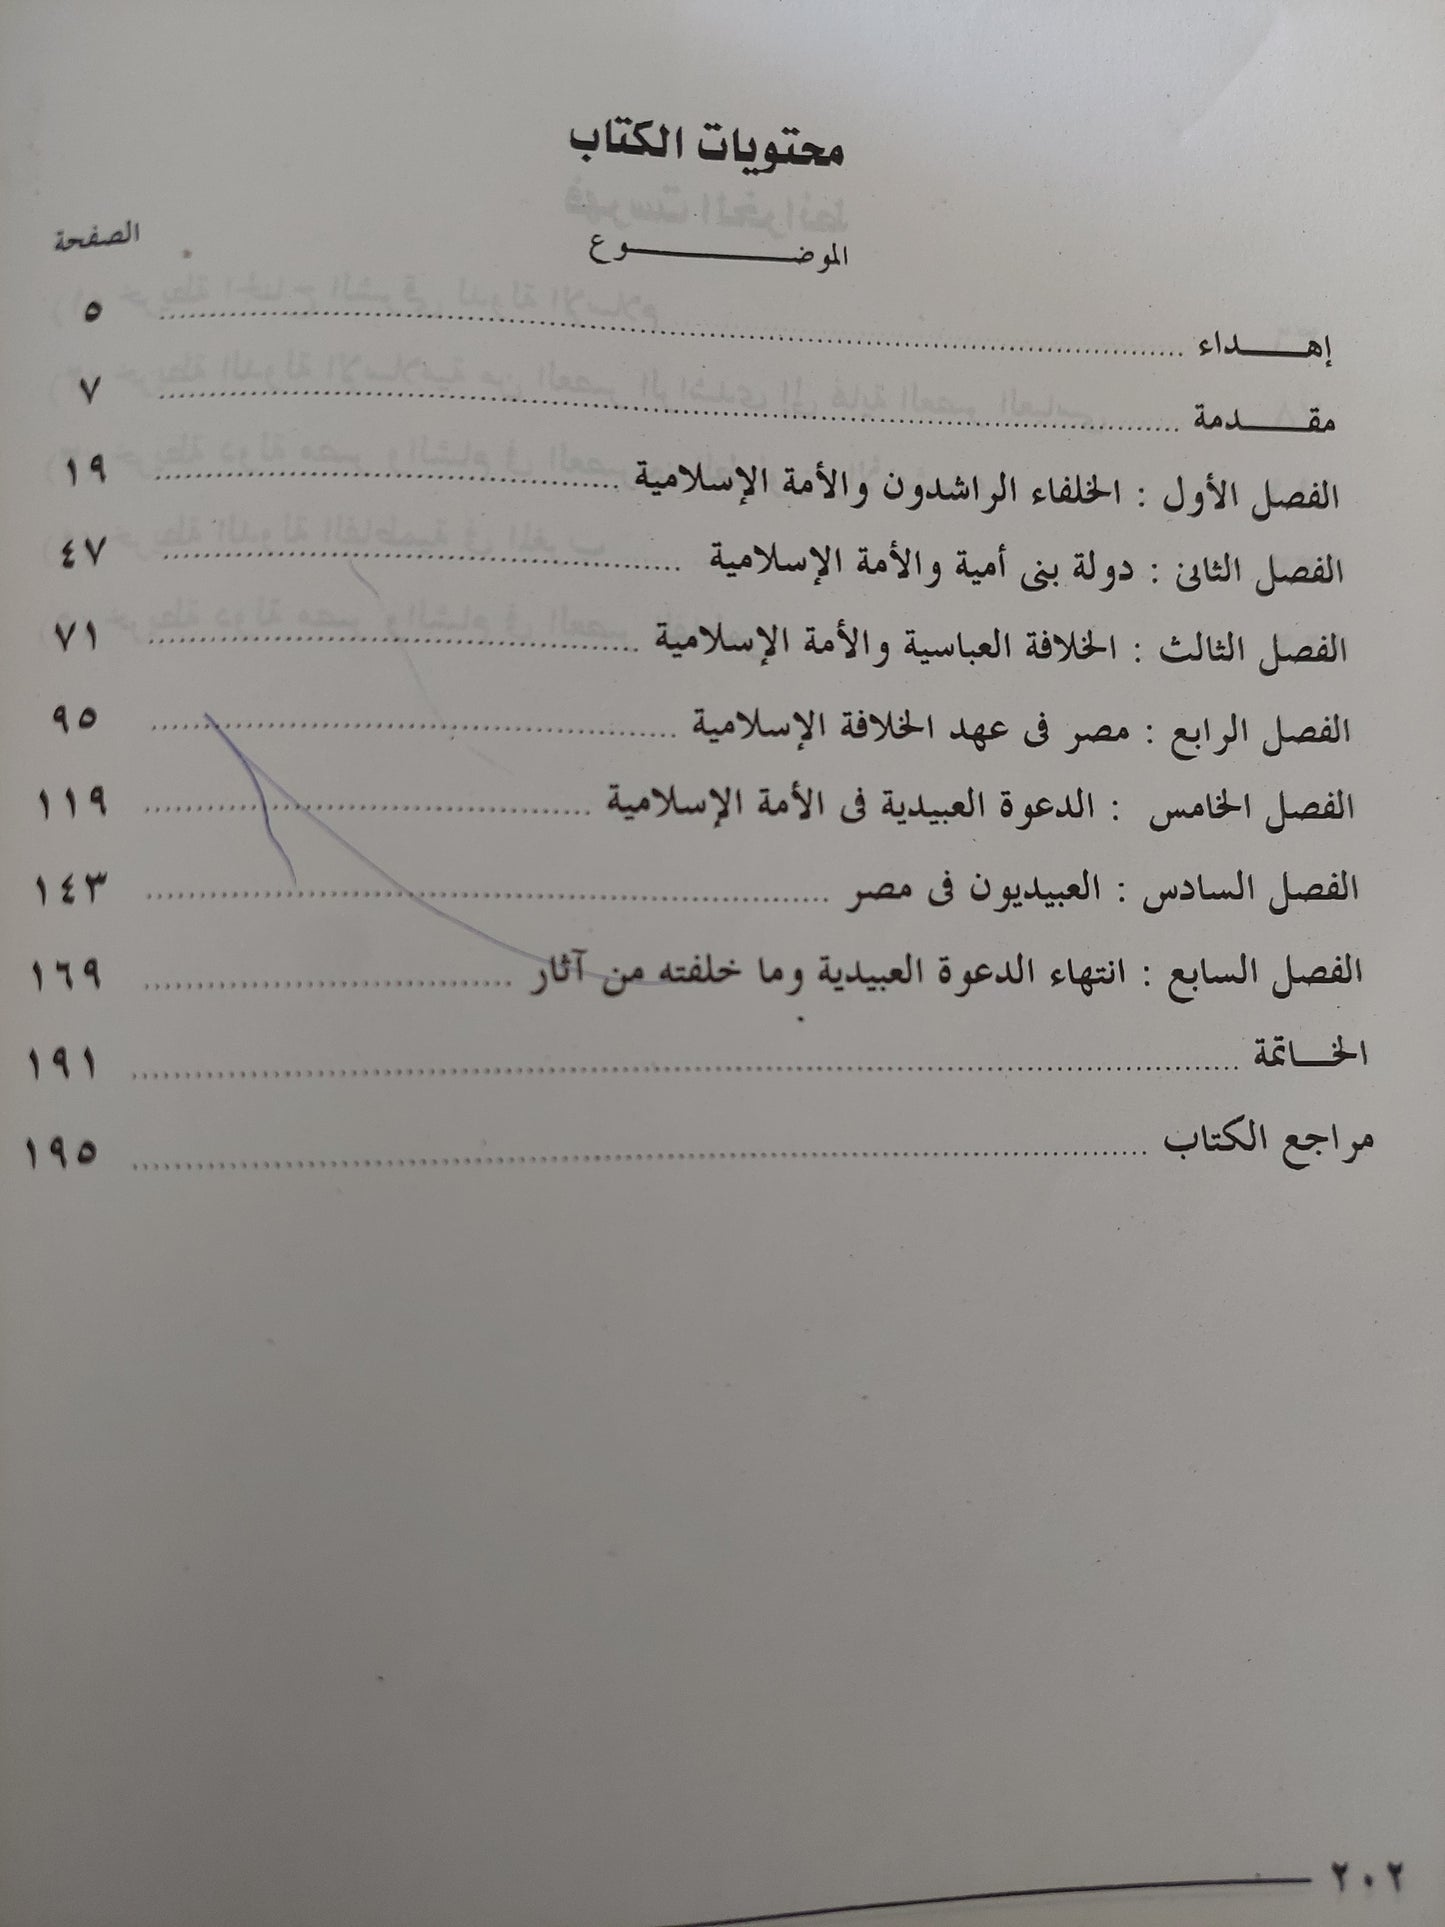 محتويات الكتاب
الموضوع الصفحة
إهداء ٥
مقدمة ٧
الفصل الأول : الخلفاء الراشدون والأمة الإسلامية ١٩
الفصل الثانى : دولة بنى أمية والأمة الإسلامية ٤٧
الفصل الثالث : الخلافة العباسية والأمة الإسلامية ٧١
الفصل الرابع : مصر فى عهد الخلافة الإسلامية ٩٥
الفصل الخامس : الدعوة العبيدية فى الأمة الإسلامية ١١٩
الفصل السادس : العبيديون فى مصر ١٤٣
الفصل السابع : انتهاء الدعوة العبيدية وما خلفته من آثار ١٦٩
الخاتمة ١٩١
مراجع الكتاب ١٩٥
٢٠٢